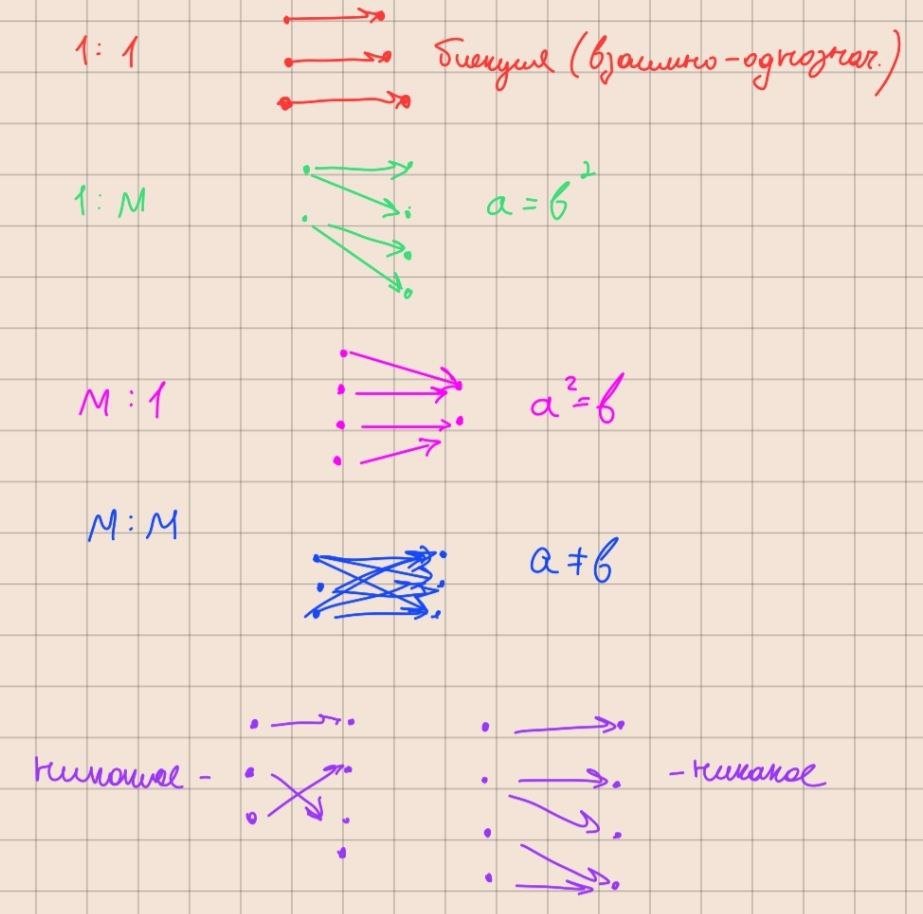 1 : 1 биекция (взаимно-однознач.)
1 : М a = b²
М : 1 a² = b
М : М a ≠ b
никакое - - никакое